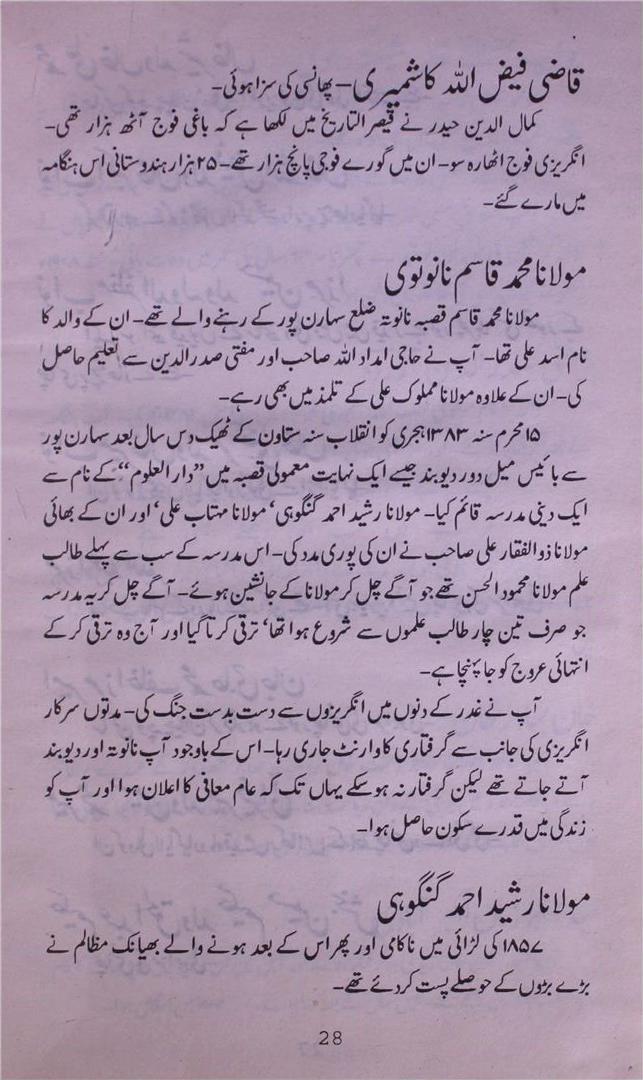 قاضی فیض اللہ کاشمیری – پھانسی کی سزا ہوئی۔
کمال الدین حیدر نے قیصر التاریخ میں لکھا ہے کہ باغی فوج آٹھ ہزار تھی۔
انگریزی فوج اٹھارہ سو۔ ان میں گورے فوجی پانچ ہزار تھے۔ ۲۵ ہزار ہندوستانی اس ہنگامہ
میں مارے گئے۔
مولانا محمد قاسم نانوتوی
مولانا محمد قاسم قصبہ نانوتہ ضلع سہارن پور کے رہنے والے تھے۔ ان کے والد کا
نام اسد علی تھا۔ آپ نے حاجی امداد اللہ صاحب اور مفتی صدر الدین سے تعلیم حاصل
کی۔ ان کے علاوہ مولانا مملوک علی کے تلمذ میں بھی رہے۔
۱۵ محرم سنہ ۱۳۸۳ ہجری کو انقلاب سنہ ستاون کے ٹھیک دس سال بعد سہارن پور
سے بائیس میل دور دیوبند جیسے ایک نہایت معمولی قصبہ میں ”دار العلوم“ کے نام سے
ایک دینی مدرسہ قائم کیا۔ مولانا رشید احمد گنگوہی‘ مولانا مہتاب علی‘ اور ان کے بھائی
مولانا ذوالفقار علی صاحب نے ان کی پوری مدد کی۔ اس مدرسہ کے سب سے پہلے طالب
علم مولانا محمود الحسن تھے جو آگے چل کر مولانا کے جانشین ہوئے۔ آگے چل کر یہ مدرسہ
جو صرف تین چار طالب علموں سے شروع ہوا تھا‘ ترقی کرتا گیا اور آج وہ ترقی کر کے
انتہائی عروج کو جا پہنچا ہے۔
آپ نے غدر کے دنوں میں انگریزوں سے دست بدست جنگ کی۔ مدتوں سرکار
انگریزی کی جانب سے گرفتاری کا وارنٹ جاری رہا۔ اس کے باوجود آپ نانوتہ اور دیوبند
آتے جاتے تھے لیکن گرفتار نہ ہو سکے یہاں تک کہ عام معافی کا اعلان ہوا اور آپ کو
زندگی میں قدرے سکون حاصل ہوا۔
مولانا رشید احمد گنگوہی
۱۸۵۷ کی لڑائی میں ناکامی اور پھر اس کے بعد ہونے والے بھیانک مظالم نے
بڑے بڑوں کے حوصلے پست کر دئے تھے۔
28